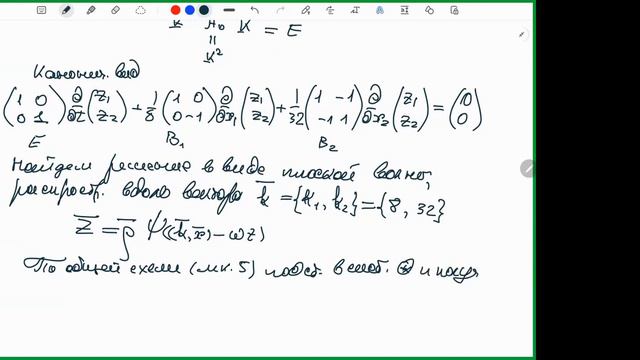 K A₀ K = E
॥
K²
Канонич. вид
(1 0 0 1) ∂/∂t (z₁ z₂) + 1/8 (1 0 0 -1) ∂/∂x₁ (z₁ z₂) + 1/32 (1 -1 -1 1) ∂/∂x₂ (z₁ z₂) = (0 0)
E B₁ B₂
Найдем решение в виде плоской волны,
распростр. вдоль вектора k = {k₁, k₂} = {8, 32}
Z = ρ ψ((k, x) - ωt)
По общей схеме (лк. 5) подст. в сист. и